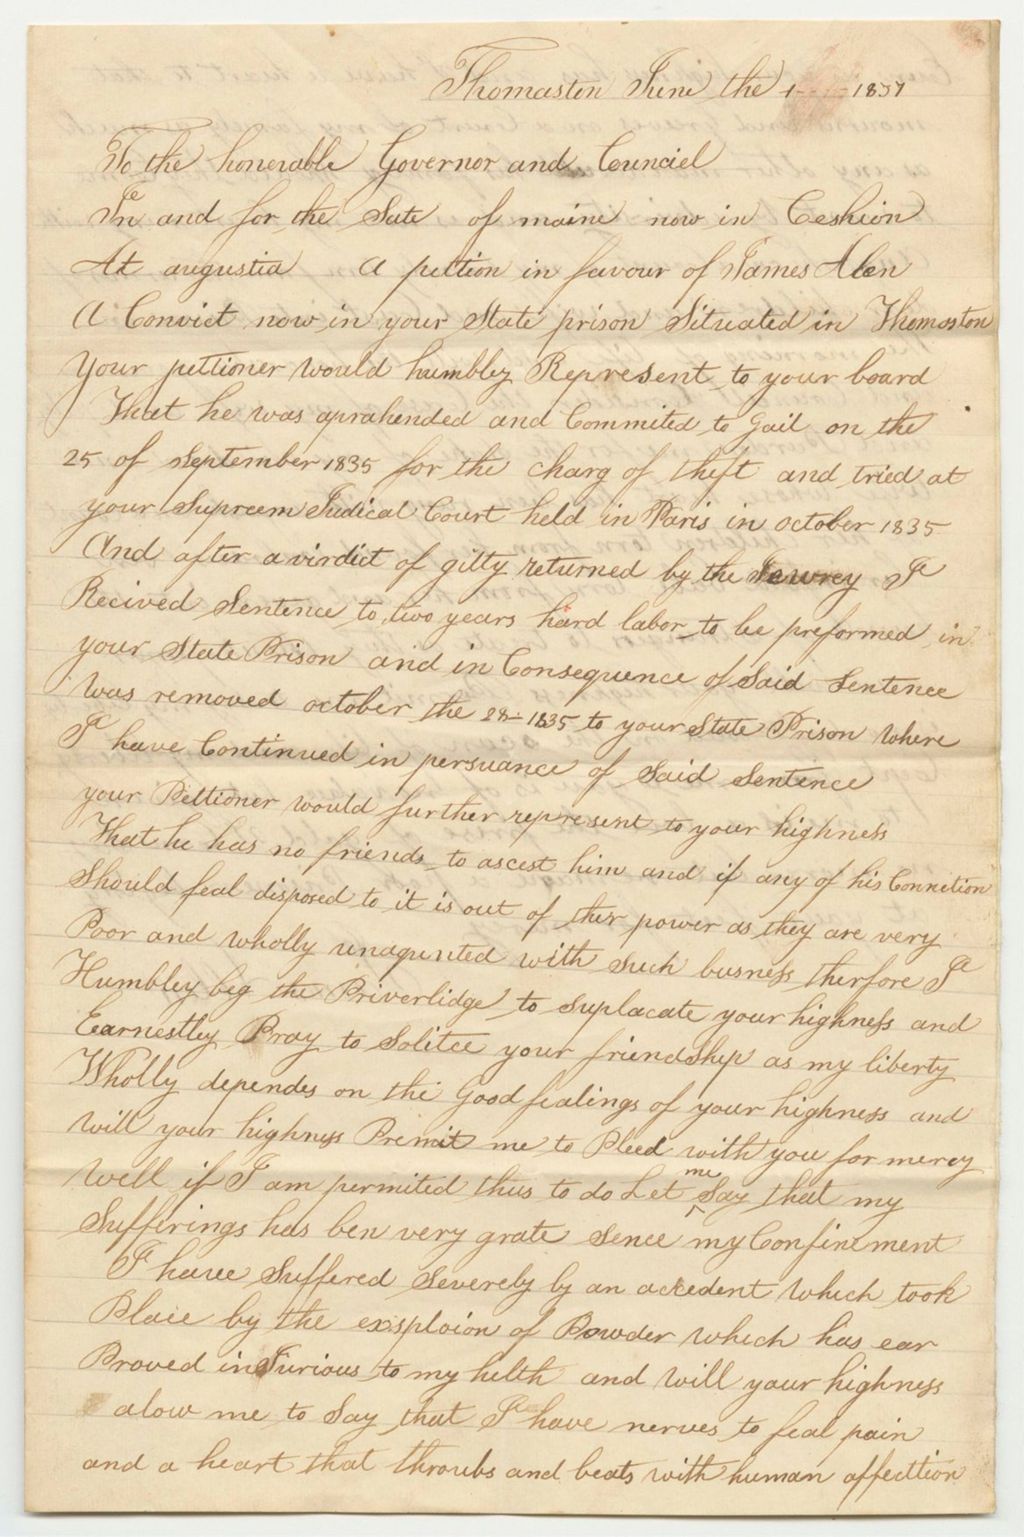 Thomaston June the 1 - - 1837
To the honerable Governor and Counciel
In and for the Sate of maine now in Ceshion
At augustia A pettion in favour of James Alen
A Convict now in your State prison Situated in Thomaston
Your pettioner would humbley Represent to your board
That he was aprahended and Commited to Gail on the
25 of September 1835 for the charg of theft and tried at
your Supreem Judical Court held in Paris in october 1835
And after a virdict of gitty returned by the Jewrey I
Recived Sentence to two years hard labor to be preformed in
your State Prison and in Consequence of Said Sentence
Was removed october the 28 - 1835 to your State Prison Where
I have Continued in persuance of Said Sentence
your Pettioner would further represent to your highness
That he has no friends to ascest him and if any of his Connetion
Should feal disposed to it is out of ther power as they are very
Poor and wholly unaqunted with such busness therfore I
Humbley beg the Priverlidge to suplacate your highness and
Earnestley Pray to Solitce your friendship as my liberty
Wholly dependes on the Good fealings of your highness and
will your highness Premit me to Pleed with you for mercy
Well if I am permited thus to do Let me Say that my
Sufferings has ben very grate sence my Confinement
I have Suffered Severely by an accedent which took
Place by the exsploion of Powder which has ear
Proved in Jurious to my helth and will your highness
alow me to Say that I have nerves to feal pain
and a heart that throubs and beats with human affecttion